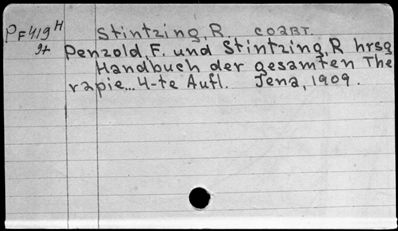 PF419H Stintzing, R. соавт.
9+ Penzold, F. und Stintzing, R hrsg
Handbuch der gesamten The
rapie... 4-te Aufl. Jena, 1909.